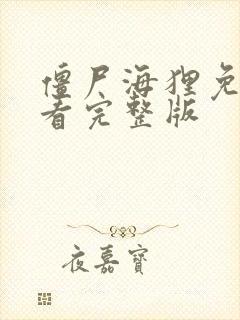 僵尸海狸免
看完整版
夜嘉寶